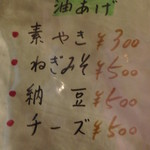 油あげ
素やき ¥300
ねぎみそ ¥500
納豆 ¥500
チーズ ¥500